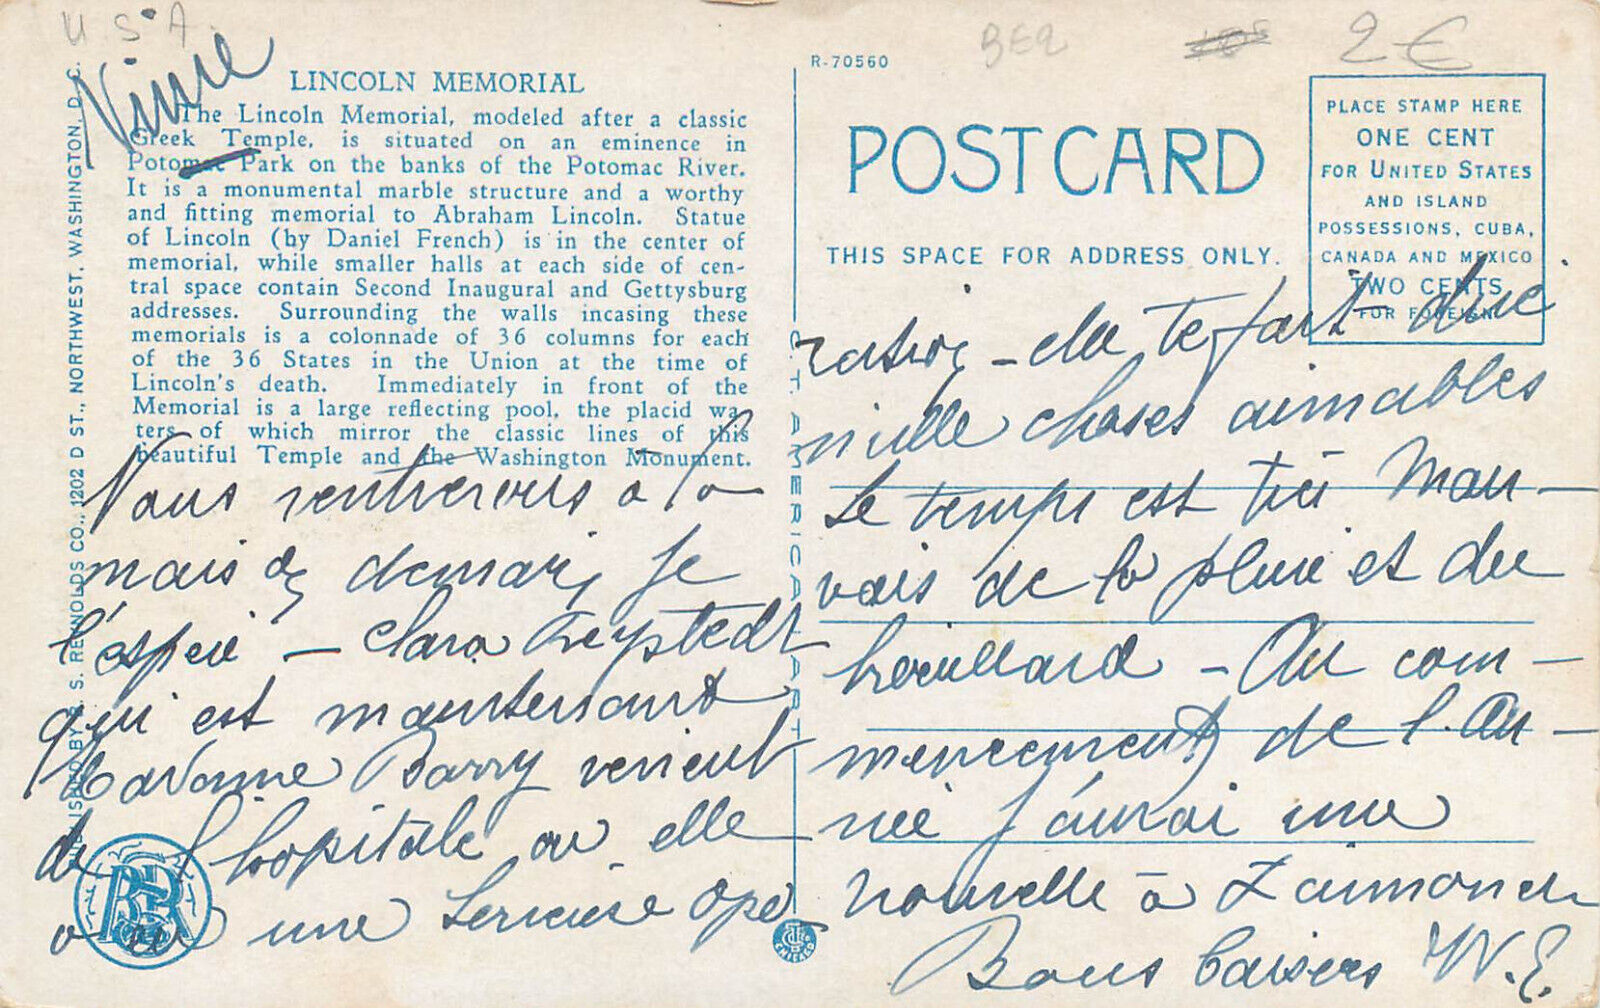 U.S.A.
LINCOLN MEMORIAL
The Lincoln Memorial, modeled after a classic
Greek Temple, is situated on an eminence in
Potomac Park on the banks of the Potomac River.
It is a monumental marble structure and a worthy
and fitting memorial to Abraham Lincoln. Statue
of Lincoln (by Daniel French) is in the center of
memorial, while smaller halls at each side of cen-
tral space contain Second Inaugural and Gettysburg
addresses. Surrounding the walls incasing these
memorials is a colonnade of 36 columns for each
of the 36 States in the Union at the time of
Lincoln's death. Immediately in front of the
Memorial is a large reflecting pool, the placid wa-
ters of which mirror the classic lines of this
beautiful Temple and the Washington Monument.
Nous rentrerons à la
maison demain, je
l'espère – Clara
qui est maintenant
Madame Barry vient
de l'hopitale ou elle
a eu une serieuse ope
PUBLISHED BY B. S. REYNOLDS CO., 1202 D ST., NORTHWEST, WASHINGTON, D. C.
BSR
C. T. AMERICAN ART
CHICAGO
R-70560
BE2
2€
POSTCARD
THIS SPACE FOR ADDRESS ONLY.
PLACE STAMP HERE
ONE CENT
FOR UNITED STATES
AND ISLAND
POSSESSIONS, CUBA,
CANADA AND MEXICO
TWO CENTS
FOR FOREIGN
ration – elle te fait dire
mille choses aimables
Le temps est très mau–
vais de la pluie et du
brouillard – Au com–
mencement de l'an–
née j'aurai une
nouvelle à
Bons baisers W.E.